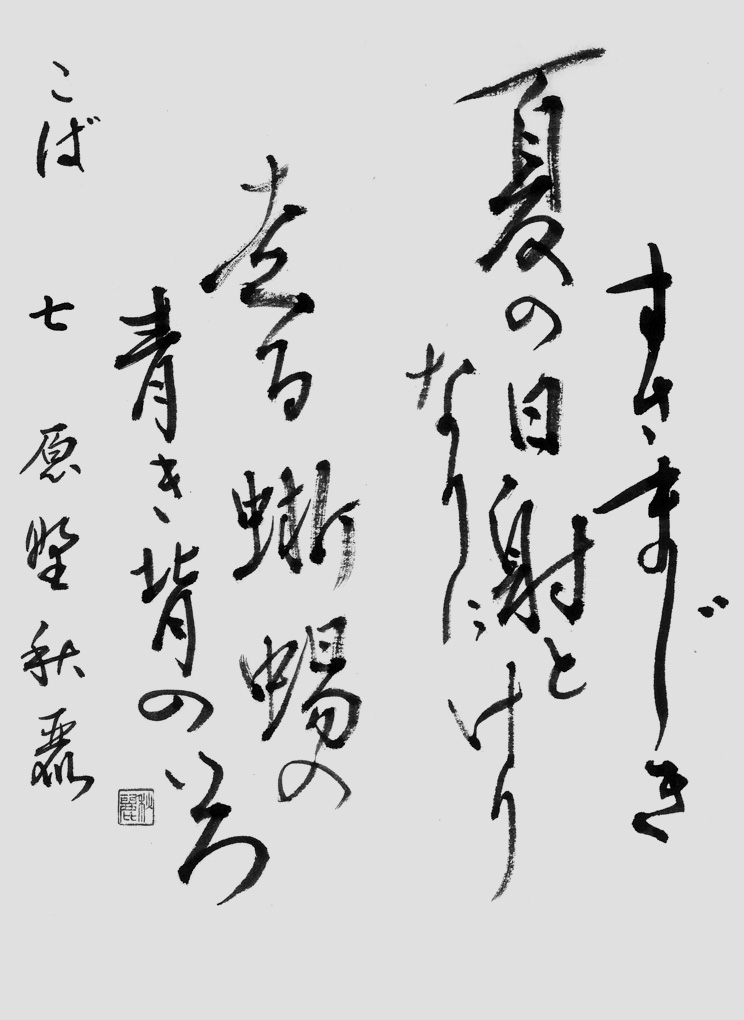 すさまじき
夏の日射と
なりにけり
走る蜥蜴の
青き背のいろ
こば 七 原野秋麗
秋麗